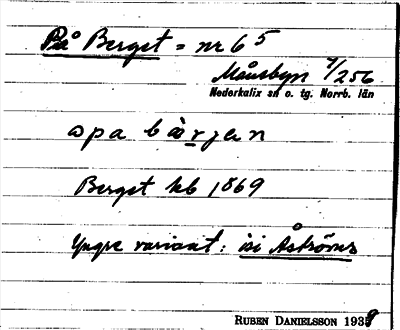 På Berget = nr 65
Månsbyn 7/256
Nederkalix sn o. tg. Norrb. län
ɔpa bärjen
Berget hb 1869
Yngre variant: isi Åströms
RUBEN DANIELSSON 1939